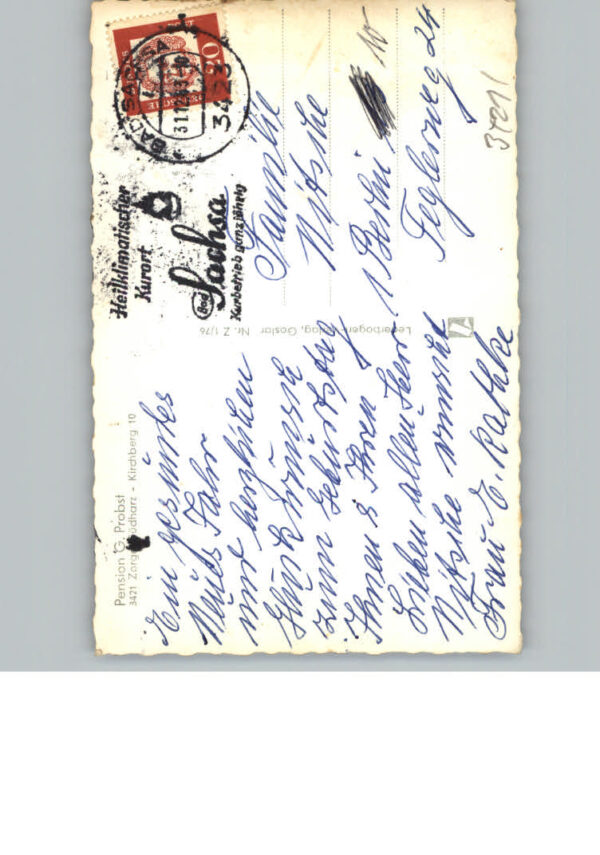 Pension G. Probst
3421 Zorge/Südharz - Kirchberg 10
Ein gesundes
Neues Jahr
und herzlichen
Glückwunsch
zum Geburtstag
Ihnen & Ihren
Lieben allen Herr
Nitsche wünscht
Frau E. Kathke
Lederbogen-Verlag, Goslar Nr. Z 1/76
BAD SACHSA
31.12.63
3423
20
Heilklimatischer
Kurort
Bad
Sachsa
Kurbetrieb ganzjährig
Familie
Nitsche
1 Berlin 10
Teglerweg 24